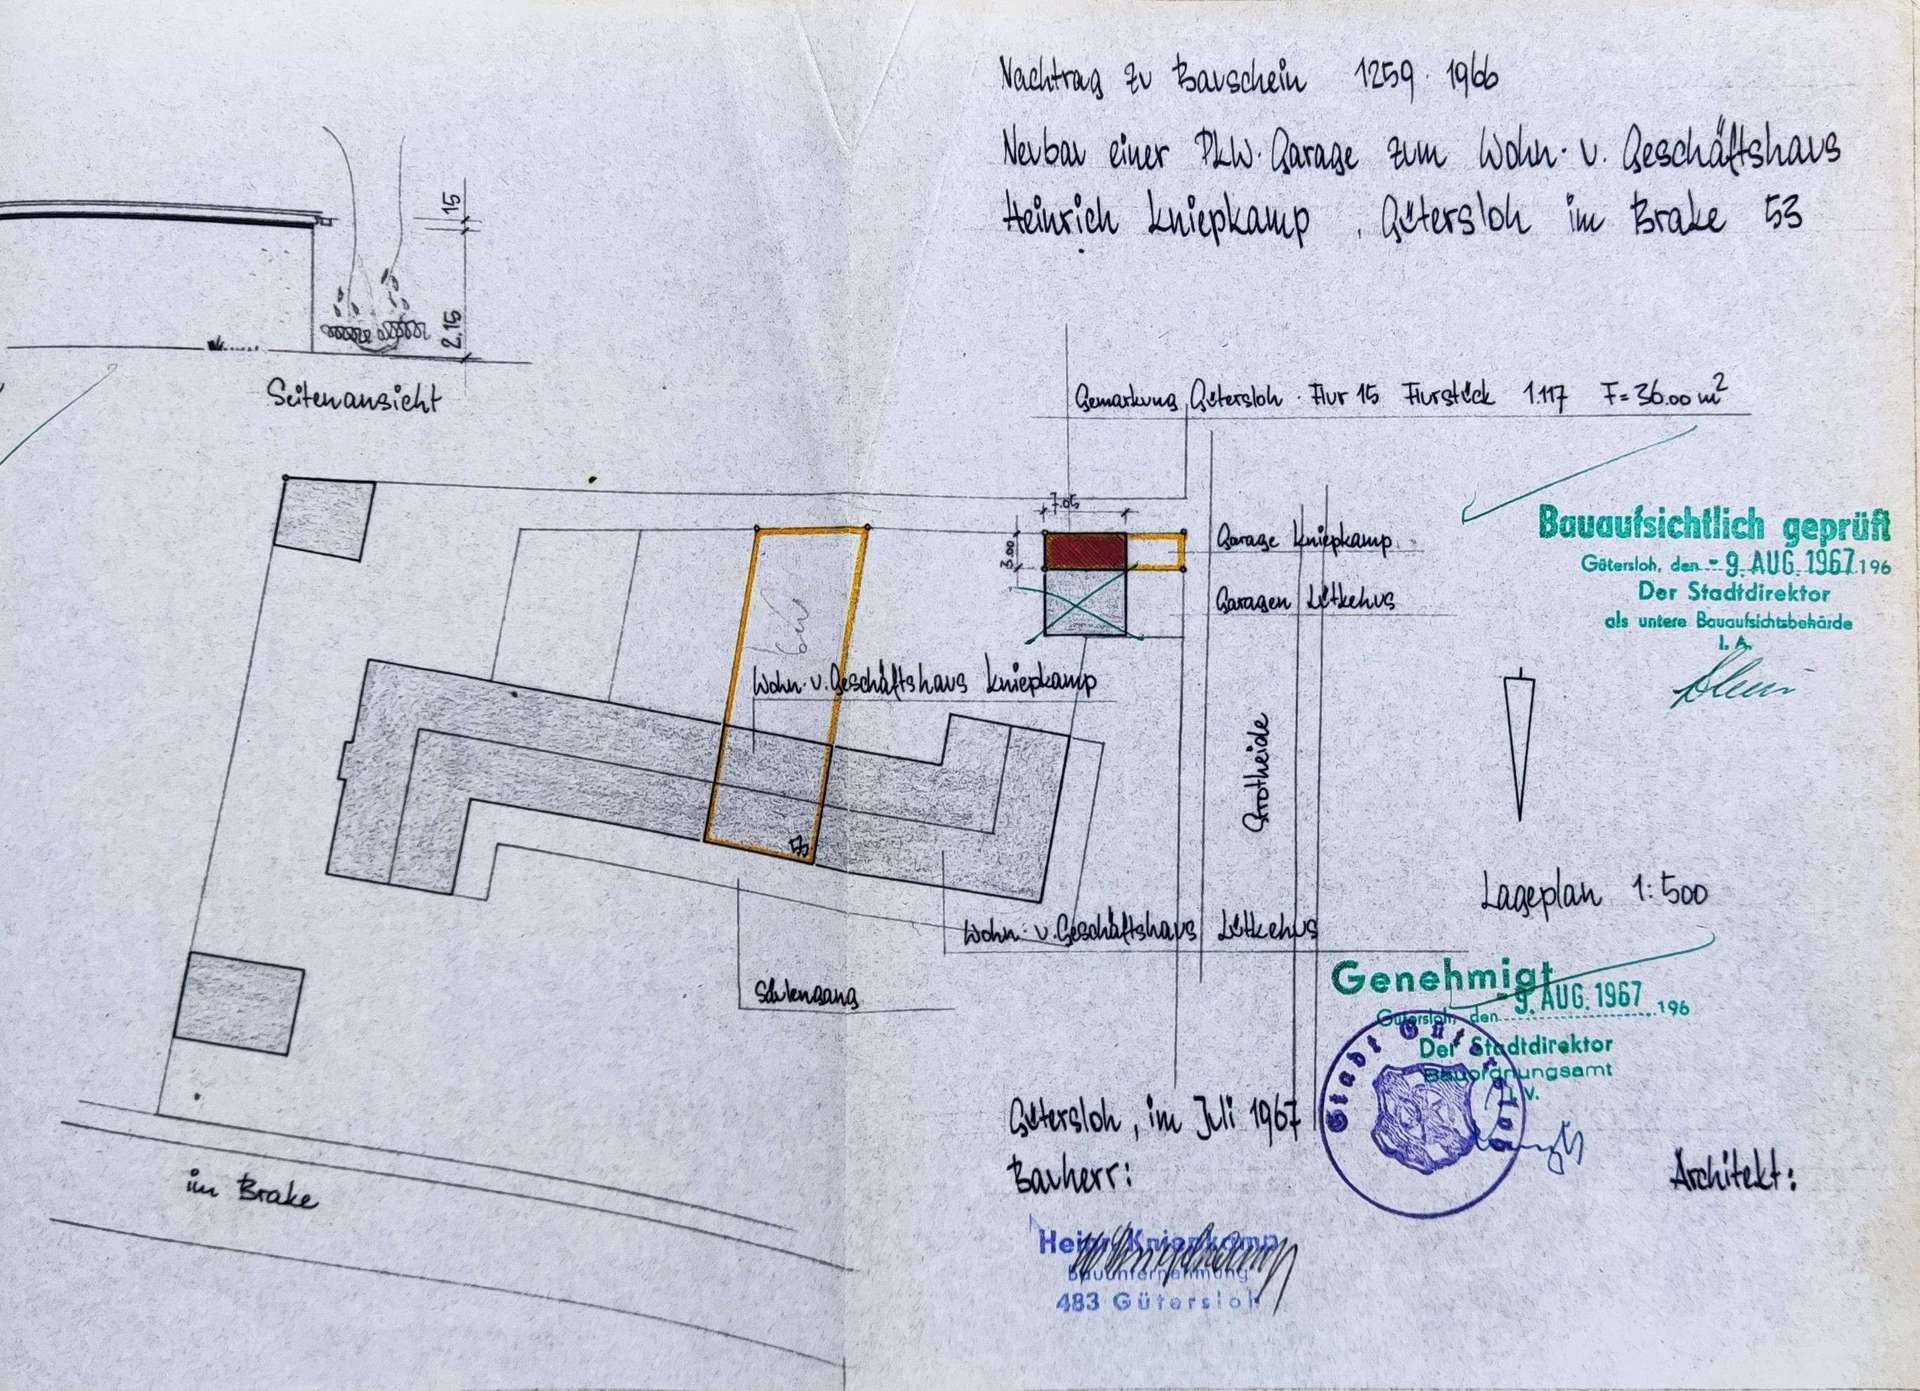 Nachtrag zu Bauschein 1259 · 1966
Neubau einer PKW·Garage zum Wohn· u. Geschäftshaus
Heinrich Kniepkamp , Gütersloh im Brake 53
15
2.15
Seitenansicht
Gemarkung Gütersloh · Flur 15 Flurstück 1.117 F=36.00 m²
7.05
3.00
Garage Kniepkamp
Garagen Lütkehus
Bauaufsichtlich geprüft
Gütersloh, den - 9. AUG. 1967 196
Der Stadtdirektor
als untere Bauaufsichtsbehörde
I. A.
Wohn· u. Geschäftshaus Kniepkamp
Grotheide
53
Lageplan 1:500
Wohn· u. Geschäftshaus Lütkehus
Säulengang
Genehmigt
Gütersloh, den - 9. AUG. 1967 196
Der Stadtdirektor
Bauordnungsamt
I. V.
Stadt Gütersloh
Gütersloh, im Juli 1967
Bauherr:
Architekt:
im Brake
Heinr. Kniepkamp
Bauunternehmung
483 Gütersloh